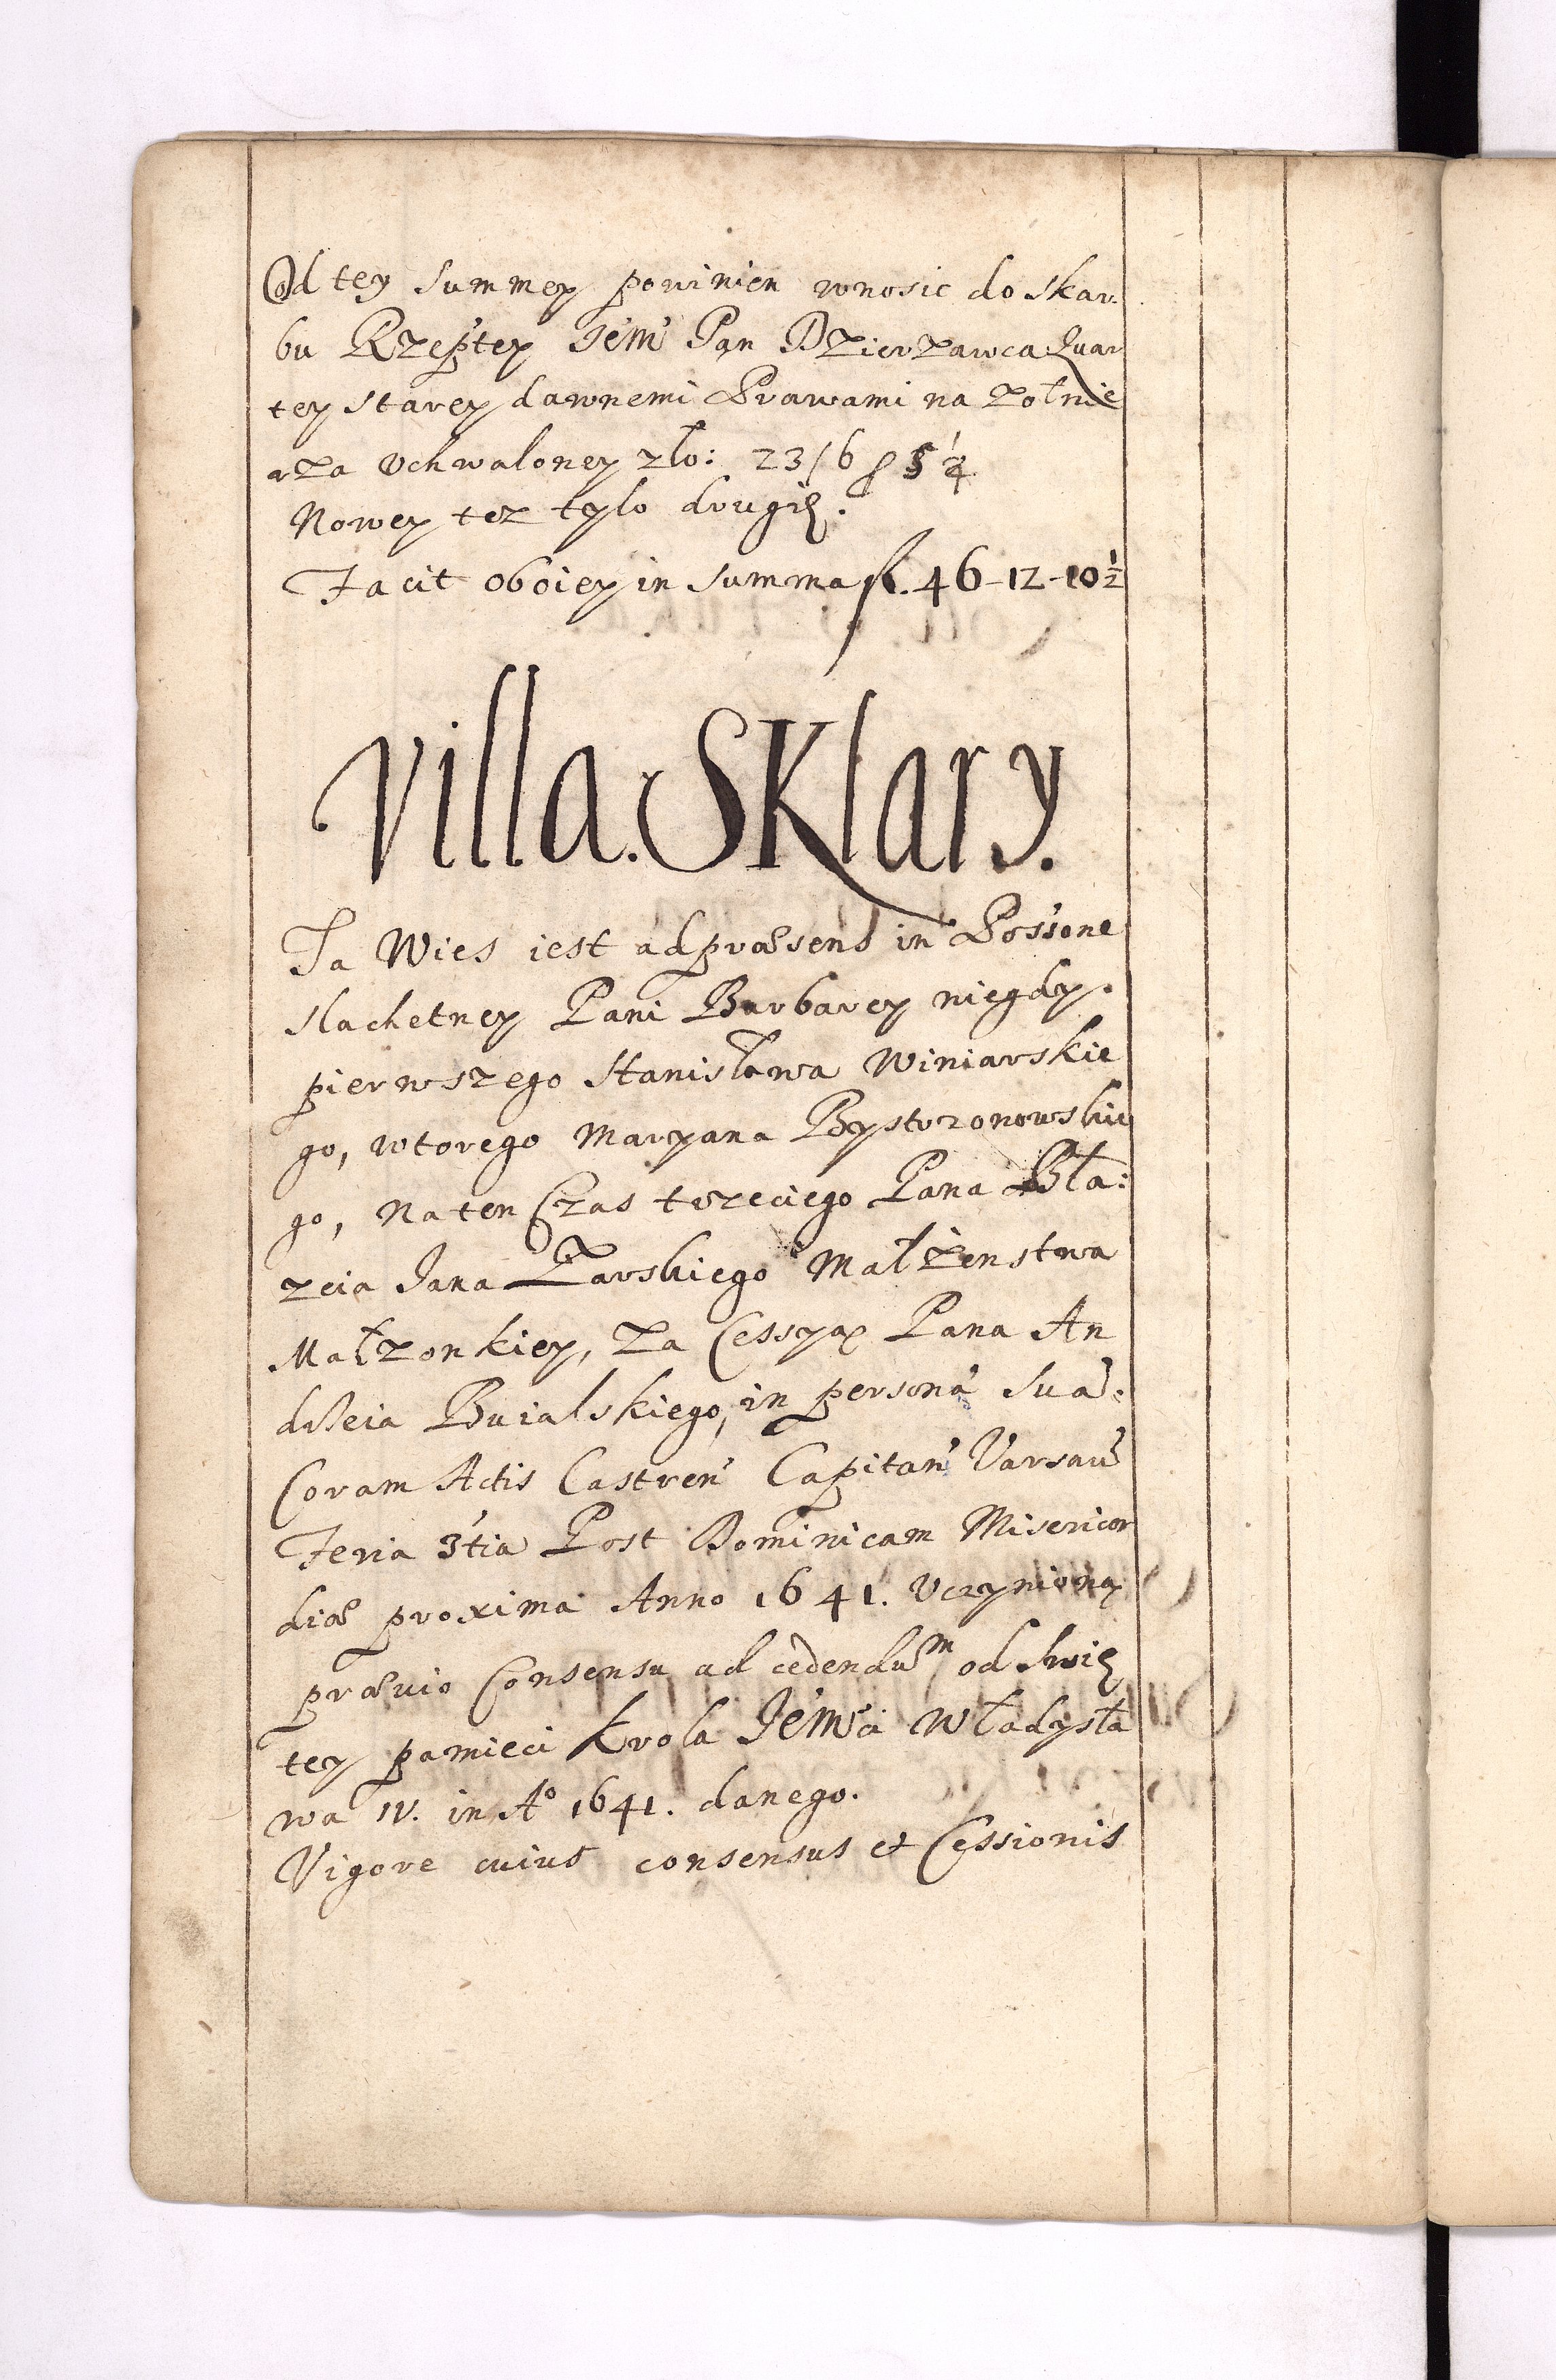 Od tey summey powinien wnosic do skar-
bu Rzeptey Jem Pan Dzierzawca quar
tey starey dawnemi Prawami na zołnie
rza vchwaloney zło: 23/6 β 5 1/4
Nowey tez tylo drugię.
Facit oboiey in summa fl. 46-12-10 1/2
Villa. SKlary.
Ta Wies iest ad præsens in Possone
slachetney Pani Barbarey niegdy.
pierwszego Stanisława Winiarskie
go, wtorego Maryana Bystrzonowskie
go, na ten Czas trzeciego Pana Bła:
zeia Jana Żarskiego Małżenstwa
Małzonkiey, za Cessyą Pana An
drzeia Buialskiego, in persona sua.
Coram Actis Castren Capitan Varsau
Feria 3tia Post Dominicam Misericor
diæ proxima Anno 1641. Vczynioną
præuio Consensu ad cedendum od swię
tey pamieci Krola Jemci Władysła
wa IV. in Aº 1641. danego.
Vigore cuius consensus et Cessionis